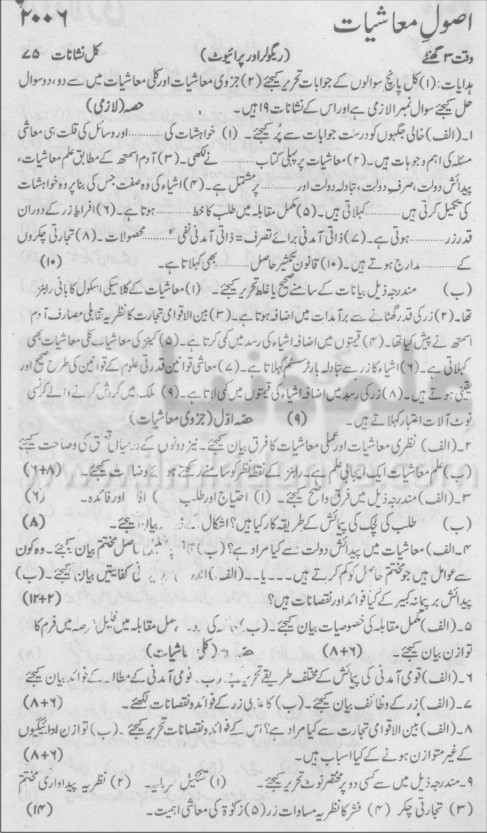 اصولِ معاشیات ۲۰۰۶
وقت ۳ گھنٹے (ریگولر اور پرائیوٹ) کل نشانات ۷۵
ہدایات: (۱) کل پانچ سوالوں کے جوابات تحریر کیجئے (۲) جزوی معاشیات اور کلی معاشیات میں سے دو، دو سوال
حل کیجئے سوال نمبر ۱ لازمی ہے اور اس کے نشانات ۱۹ ہیں۔ حصہ (لازمی)
۱۔ (الف) خالی جگہوں کو درست جوابات سے پُر کیجئے۔ (۱) خواہشات کی ............ اور وسائل کی قلت ہی معاشی
مسئلہ کی اہم وجوہات ہیں۔ (۲) معاشیات پر پہلی کتاب ............ نے لکھی۔ (۳) آدم اسمتھ کے مطابق علم معاشیات،
پیدائش دولت، صرفِ دولت، تبادلہ دولت اور ............ پر مشتمل ہے۔ (۴) اشیاء کی وہ صفت جس کی بنا پر وہ خواہشات
کی تکمیل کرتی ہیں ............ کہلاتی ہیں۔ (۵) مکمل مقابلہ میں طلب کا خط ............ ہوتا ہے۔ (۶) افراطِ زر کے دوران
قدرِ زر ............ ہوتی ہے۔ (۷) ذاتی آمدنی برائے تصرف = ذاتی آمدنی نفی ............ محصولات۔ (۸) تجارتی چکروں
کے ............ مدارج ہوتے ہیں۔ (۱۰) قانون تکثیر حاصل ............ بھی کہلاتا ہے۔ (۱۰)
(ب) مندرجہ ذیل بیانات کے سامنے صحیح یا غلط تحریر کیجئے۔ (۱) معاشیات کے کلاسیکی اسکول کا بانی رابنز
تھا۔ (۲) زر کی قدر گھٹانے سے برآمدات میں اضافہ ہوتا ہے۔ (۳) بین الاقوامی تجارت کا نظریہ تقابلی مصارف آدم
اسمتھ نے پیش کیا تھا۔ (۴) قیمتوں میں اضافہ اشیاء کی رسد میں کمی کرتا ہے۔ (۵) کینز کی معاشیات کلی معاشیات بھی
کہلاتی ہے۔ (۶) اشیاء کا زر سے تبادلہ بارٹر سسٹم کہلاتا ہے۔ (۷) معاشی قوانین قدرتی علوم کے قوانین کی طرح صحیح اور
یقینی ہوتے ہیں۔ (۸) زر کی رسد میں اضافہ اشیاء کی قیمتوں میں کمی لاتا ہے۔ (۹) ملک میں گردش کرنے والے کرنسی
نوٹ آلات اعتبار کہلاتے ہیں۔ (۹) حصہ اوّل (جزوی معاشیات)
۲۔ (الف) نظری معاشیات اور عملی معاشیات کا فرق بیان کیجئے۔ نیز دونوں کے درمیان تعلق کی وضاحت کیجئے
(ب) علم معاشیات ایک ایجابی علم ہے۔ رابنز کے نقطۂ نظر کو سامنے رکھتے ہوئے وضاحت کیجئے۔ (۸+۶)
۳۔ (الف) مندرجہ ذیل میں فرق واضح کیجئے۔ (۱) احتیاج اور طلب (۲) افادہ اور فائدہ۔ (۶)
(ب) طلب کی لچک کی پیمائش کے طریقہ کار کیا ہیں؟ اشکال بیان کیجئے۔ (۸)
۴۔ (الف) معاشیات میں پیدائش دولت سے کیا مراد ہے؟ (ب) حاصل مختتم بیان کیجئے۔ وہ کون
سے عوامل ہیں جو مختتم حاصل کو کم کرتے ہیں۔۔۔۔ یا۔۔ (الف) اندرونی کفایتیں بیان کیجئے۔ (ب)
پیدائش بر پیمانہ کبیر کے کیا فوائد اور نقصانات ہیں؟ (۲+۱۲)
۵۔ (الف) مکمل مقابلہ کی خصوصیات بیان کیجئے۔ (ب) مکمل مقابلہ میں قلیل عرصہ میں فرم کا
توازن بیان کیجئے۔ (۸+۶) حصہ دوم (کلی معاشیات)
۶۔ (الف) قومی آمدنی کی پیمائش کے مختلف طریقے تحریر کیجئے۔ (ب) قومی آمدنی کے مطالعہ کے فوائد بیان کیجئے۔
۷۔ (الف) زر کے وظائف بیان کیجئے۔ (ب) کاغذی زر کے فوائد و نقصانات لکھئے۔ (۸+۶)
۸۔ (الف) بین الاقوامی تجارت سے کیا مراد ہے؟ اس کے فوائد و نقصانات تحریر کیجئے۔ (ب) توازن ادائیگیوں
کے غیر متوازن ہونے کے کیا اسباب ہیں۔ (۸+۶)
۹۔ مندرجہ ذیل میں سے کسی دو پر مختصر نوٹ تحریر کیجئے۔ (۱) تشکیل سرمایہ۔ (۲) نظریہ پیداواری مختتم
(۳) تجارتی چکر (۴) فشر کا نظریہ مساوات زر (۵) زکوٰۃ کی معاشی اہمیت۔ (۱۴)